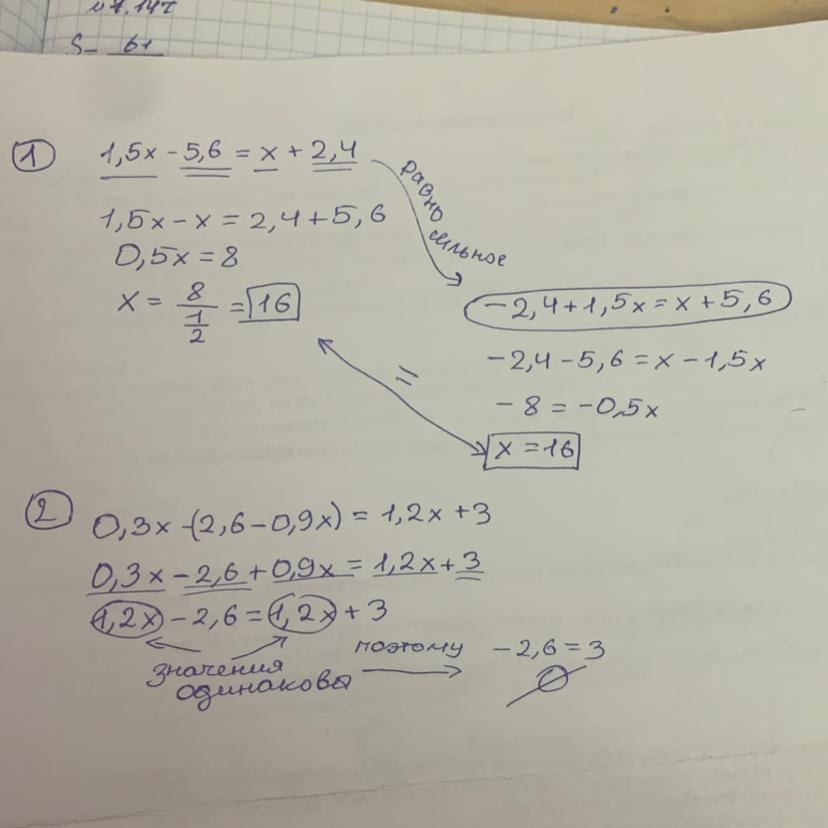 S- 61
1 1,5x - 5,6 = x + 2,4
1,5x - x = 2,4 + 5,6
0,5x = 8
x = 8/(1/2) = 16
равносильное
-2,4 + 1,5x = x + 5,6
-2,4 - 5,6 = x - 1,5x
-8 = -0,5x
x = 16
=
2 0,3x - (2,6 - 0,9x) = 1,2x + 3
0,3x - 2,6 + 0,9x = 1,2x + 3
1,2x - 2,6 = 1,2x + 3
значения одинаковы
поэтому
-2,6 = 3
∅